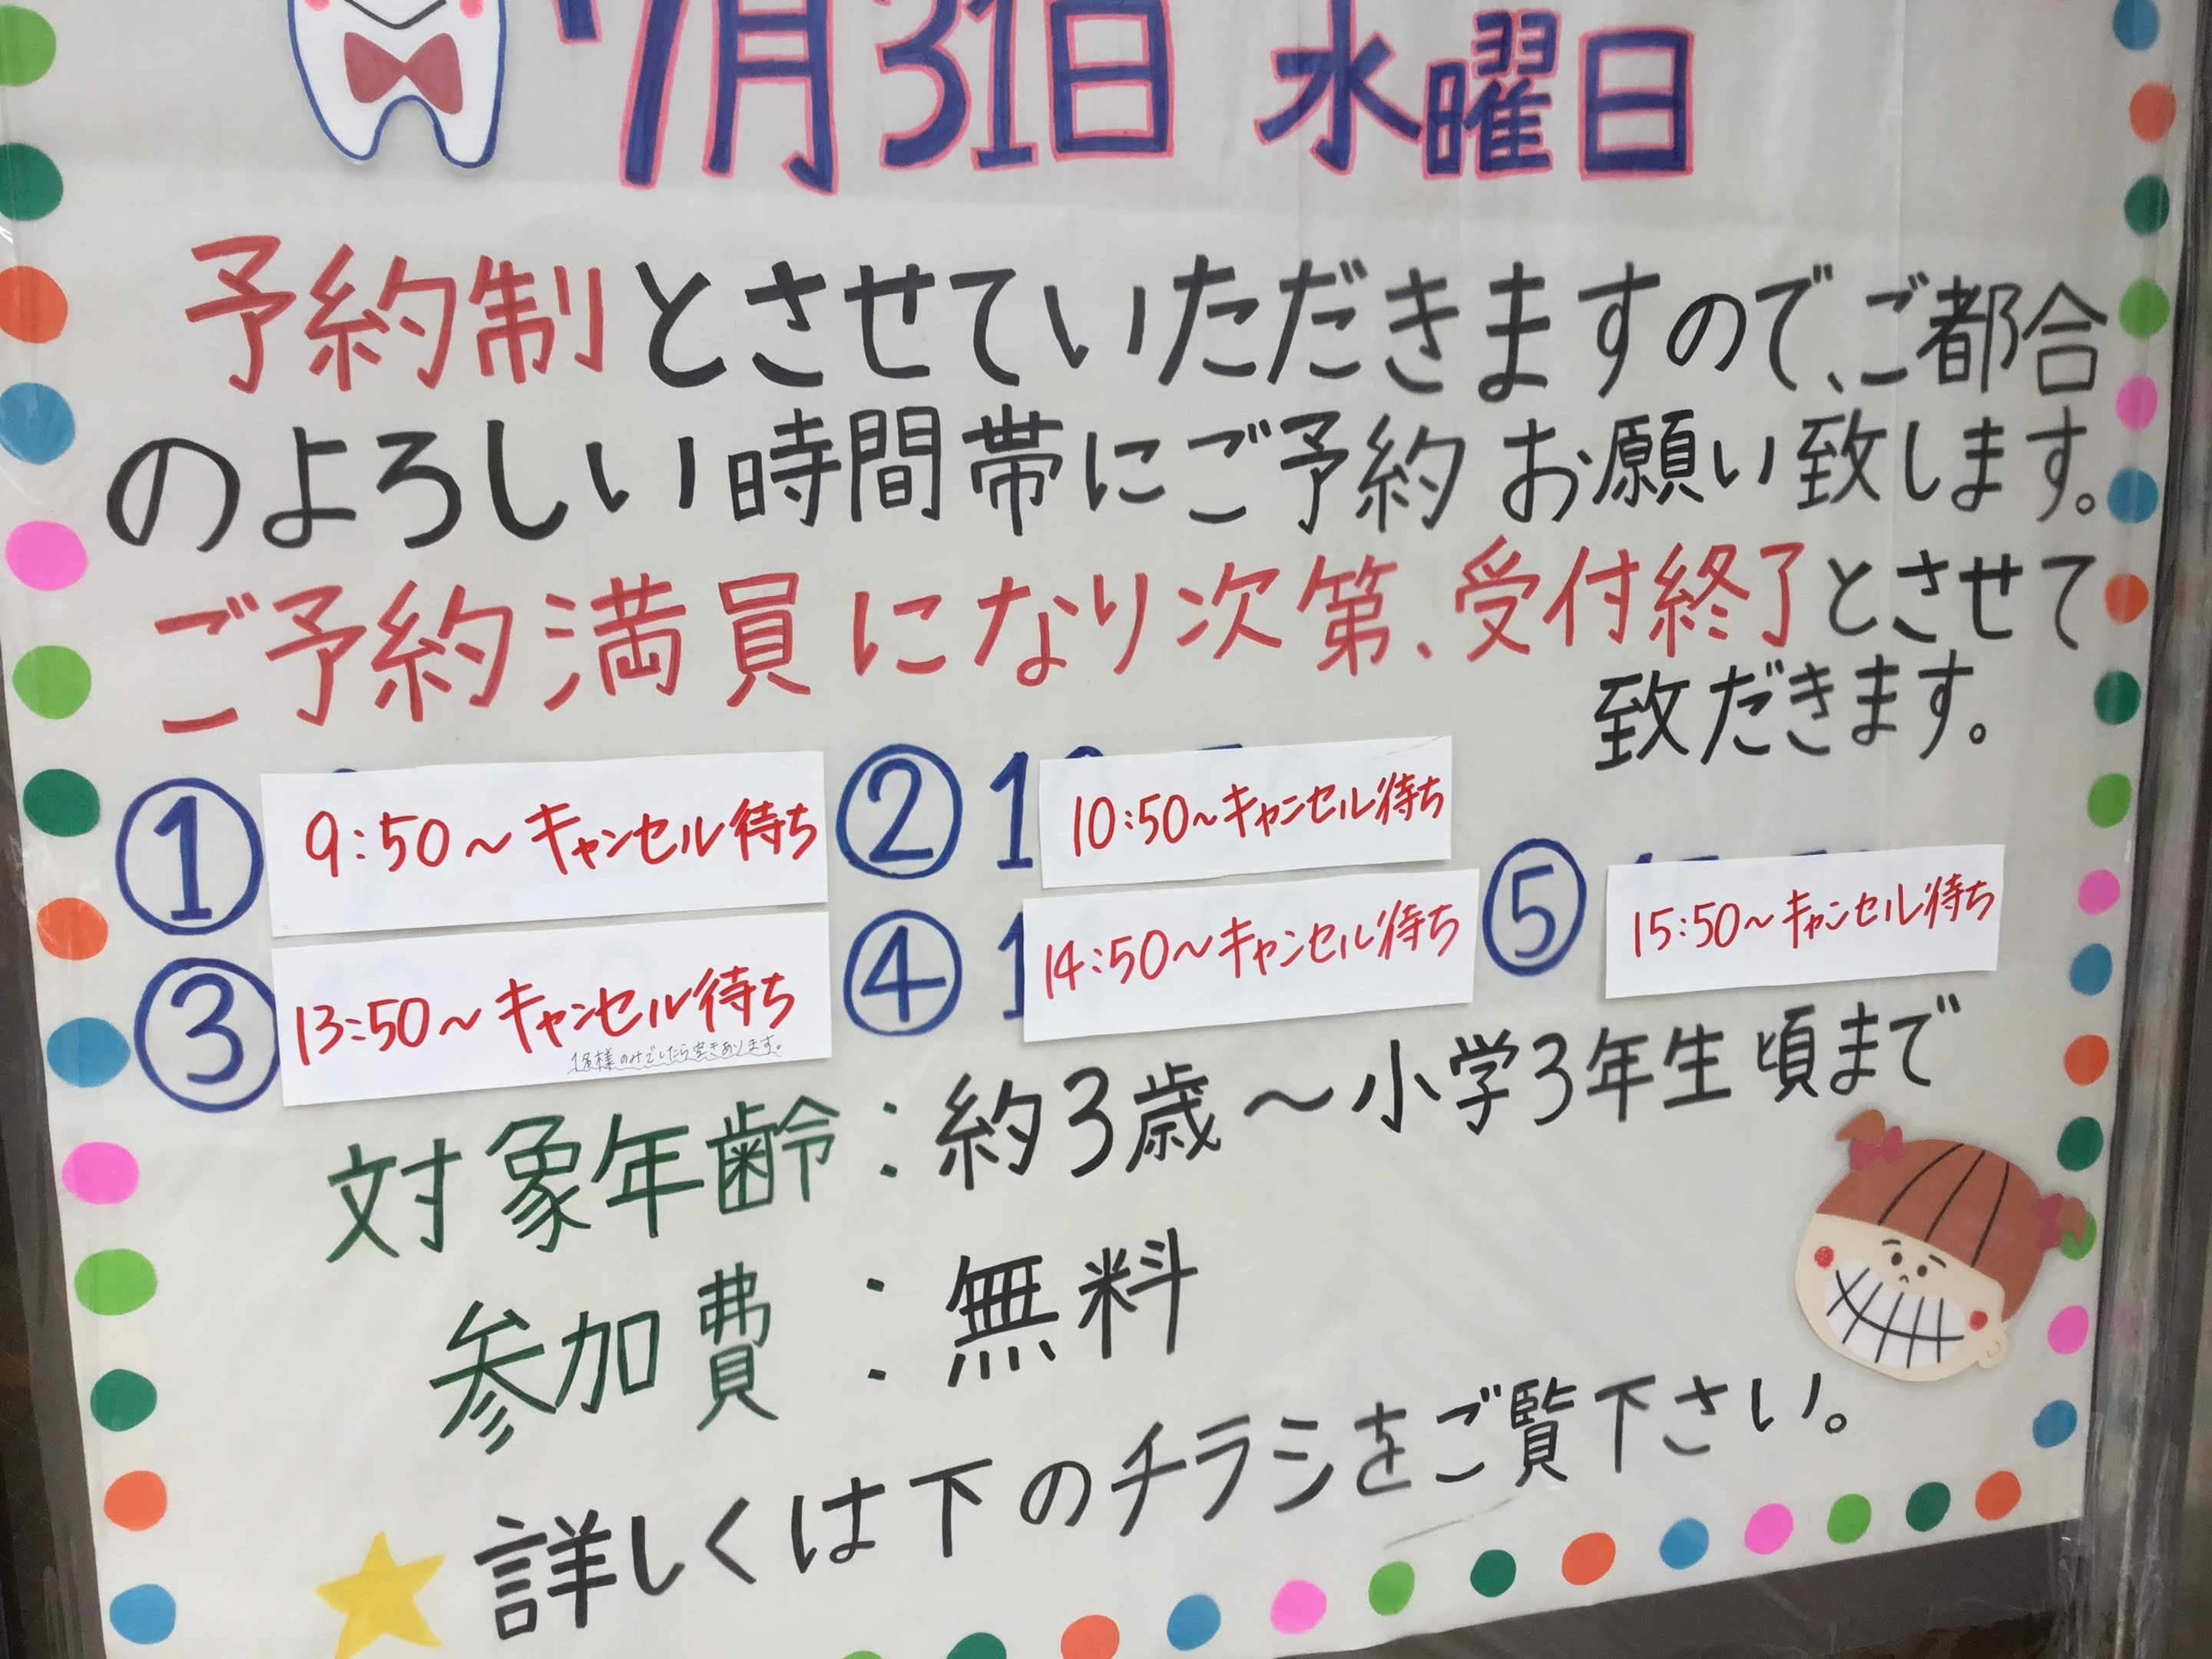 7月31日 水曜日
予約制とさせていただきますので、ご都合
のよろしい時間帯にご予約お願い致します。
ご予約満員になり次第、受付終了とさせて
致だきます。
① 9:50～キャンセル待ち ② 1 10:50～キャンセル待ち
③ 13:50～キャンセル待ち ④ 1 14:50～キャンセル待ち ⑤ 15:50～キャンセル待ち
1名様のみでしたら空きあります。
対象年齢：約3歳～小学3年生頃まで
参加費：無料
詳しくは下のチラシをご覧下さい。